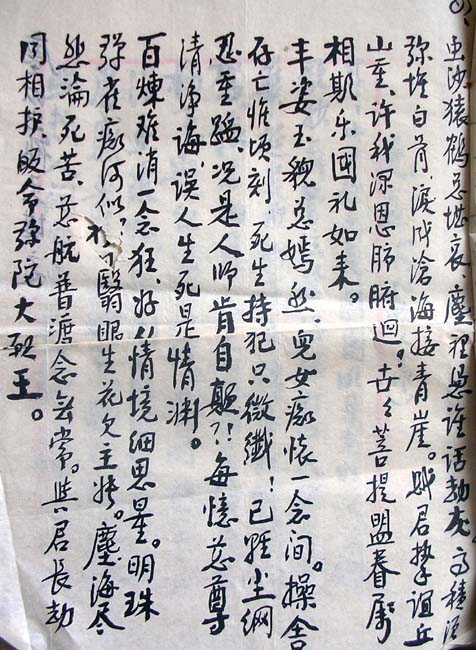 虫沙猿鹤总堪哀,塵裡恩谁话劫灰,高穗
弥堆白骨,淚成滄海接青崖。感君摯谊丘
山重,许我深恩肺腑迴。世々菩提盟眷属
相期乐国礼如来。
丰姿玉貌总嫣然,兒女痴怀一念间。操舍
存亡惟顷刻,死生持犯只微纖!已離尘網
忍重蹈,况是人师肯自颠?!每憶慈尊
清净诲,误人生死是情渊。
百煉难消一念狂,好从情境细思量。明珠
弹雀痴何似?翳眼生花久主张。塵海尽
然淪死苦,慈航普渡念無常。與君長劫
同相护,皈命弥陀大願王。